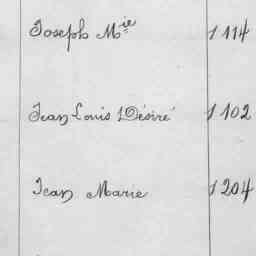 Joseph Mie 1114
Jean Louis Désiré 1102
Jean Marie 1204